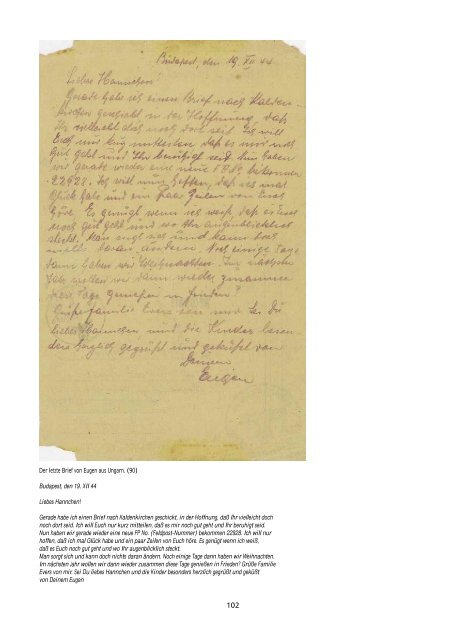 Budapest, den 19. XII 44
Liebes Hannchen!
Gerade habe ich einen Brief nach Kalden-
kirchen geschickt in der Hoffnung, daß
Ihr vielleicht doch noch dort seid. Ich will
Euch nur kurz mitteilen daß es mir noch
gut geht und Ihr beruhigt seid. Nun haben
wir gerade wieder eine neue FPNo bekommen
22928. Ich will nun hoffen, daß ich mal
Glück habe und ein paar Zeilen von Euch
höre. Es genügt wenn ich weiß, daß es Euch
noch gut geht und wo Ihr augenblicklich
steckt. Man sorgt sich und kann doch
nichts daran ändern. Noch einige Tage
dann haben wir Weihnachten. Im nächsten
Jahr wollen wir dann wieder zusammen
diese Tage genießen in Frieden.
Grüße Familie Evers von mir. Sei Du
liebes Hannchen und die Kinder beson-
ders herzlich gegrüßt und geküßt von
Deinem
Eugen
Der letzte Brief von Eugen aus Ungarn. (90)
Budapest, den 19. XII 44
Liebes Hannchen!
Gerade habe ich einen Brief nach Kaldenkirchen geschickt, in der Hoffnung, daß Ihr vielleicht doch
noch dort seid. Ich will Euch nur kurz mitteilen, daß es mir noch gut geht und Ihr beruhigt seid.
Nun haben wir gerade wieder eine neue FP No. (Feldpost-Nummer) bekommen 22928. Ich will nur
hoffen, daß ich mal Glück habe und ein paar Zeilen von Euch höre. Es genügt wenn ich weiß,
daß es Euch noch gut geht und wo Ihr augenblicklich steckt.
Man sorgt sich und kann doch nichts daran ändern. Noch einige Tage dann haben wir Weihnachten.
Im nächsten Jahr wollen wir dann wieder zusammen diese Tage genießen in Frieden? Grüße Familie
Evers von mir. Sei Du liebes Hannchen und die Kinder besonders herzlich gegrüßt und geküßt
von Deinem Eugen
102